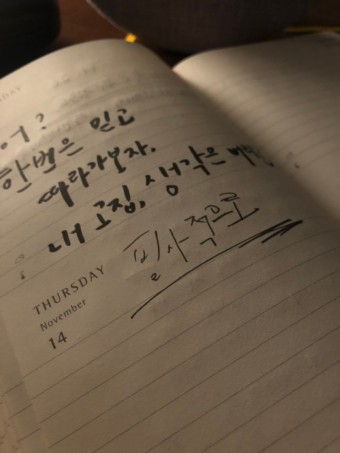 DAY
어?
한번은 믿고
따라가보자.
내 고집, 생각은
필사적으로
THURSDAY
November
14